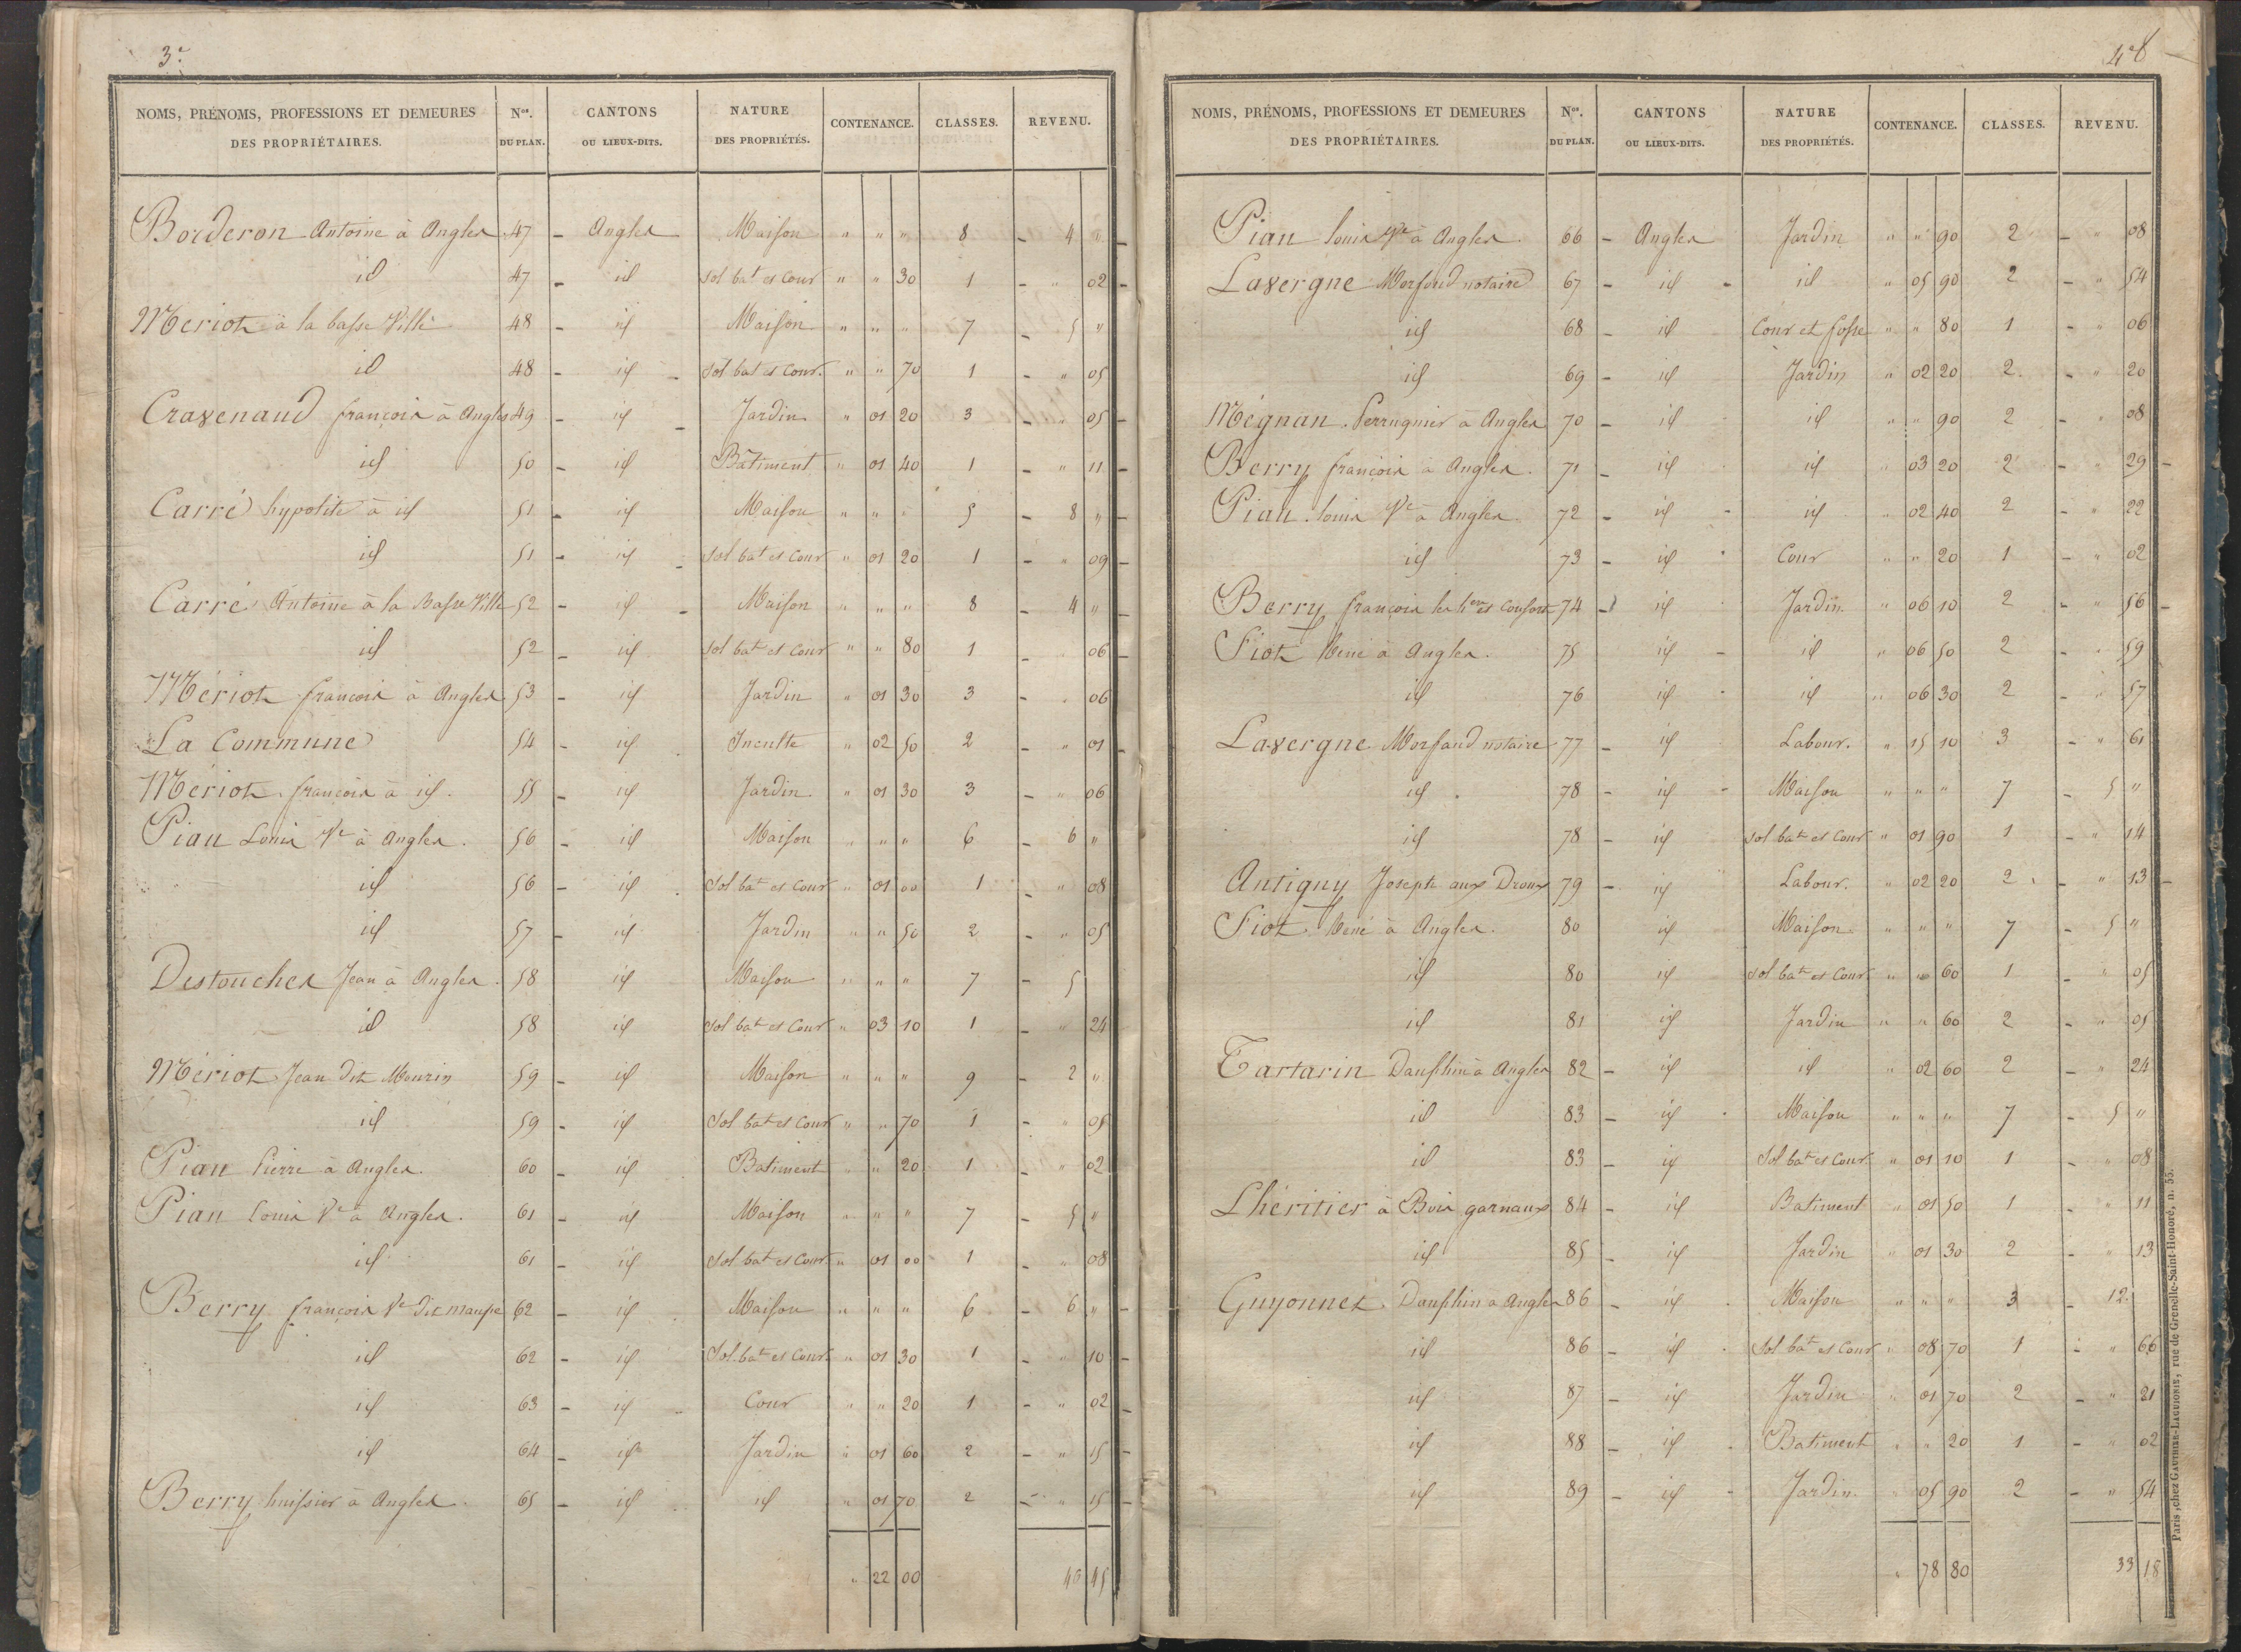 3.e
NOMS, PRÉNOMS, PROFESSIONS ET DEMEURES DES PROPRIÉTAIRES. Nos. DU PLAN. CANTONS OU LIEUX-DITS. NATURE DES PROPRIÉTÉS. CONTENANCE. CLASSES. REVENU.
Borderon Antoine à Angles 47 - Angles Maison " " " 8 - 4 "
id 47 - id sol bat et Cour " " 30 1 - " 02
Meriot à la basse Ville 48 - id Maison " " " 7 - 5 "
id 48 - id sol bat et Cour. " " 70 1 - " 05
Cravenaud françois à Angles 49 - id Jardin " 01 20 3 - " 05
id 50 - id Bâtiment " 01 40 1 - " 11
Carré hypolite à id 51 - id Maison " " " 5 - 8 "
id 51 - id sol bat et Cour " 01 20 1 - " 09
Carré Antoine à la Basse Ville 52 - id Maison " " " 8 - 4 "
id 52 - id sol bat et Cour " " 80 1 - " 06
Mériot françois à Angles 53 - id Jardin " 01 30 3 - " 06
La Commune 54 - id Inculte " 02 50 2 - " 01
Mériot françois à id. 55 - id Jardin. " 01 30 3 - " 06
Pian Louis Ve à Angles. 56 - id Maison " " " 6 - 6 "
id 56 - id Sol bat et Cour " 01 00 1 - " 08
id 57 - id Jardin " " 50 2 - " 05
Destouches Jean à Angles. 58 id Maison " " " 7 - 5
id 58 id sol bat et Cour " 03 10 1 - " 24
Mériot Jean dit Mourin 59 - id Maison " " " 9 - 2 "
id 59 - id Sol bat et Cour " " 70 1 - " 05
Pian Pierre à Angles. 60 - id Batiment " " 20 1 - " 02
Pian Louis Ve à Angles. 61 - id Maison " " " 7 - 5 "
id 61 - id Sol bat et Cour " 01 00 1 - " 08
Berry françois Ve dit 62 - id Maison " " " 6 - 6 "
id 62 - id Sol bat et Cour " 01 30 1 - " 10
id 63 - id Cour " " 20 1 - " 02
id 64 - id Jardin " 01 60 2 - " 15
Berry huissier à Angles. 65 - id id " 01 70 2 - " 15
" 22 00 45
4e
NOMS, PRÉNOMS, PROFESSIONS ET DEMEURES DES PROPRIÉTAIRES. Nos. DU PLAN. CANTONS OU LIEUX-DITS. NATURE DES PROPRIÉTÉS. CONTENANCE. CLASSES. REVENU.
Pian louis Ve à Angles. 66 - Angles Jardin " " 90 2 - " 08
Lavergne Morfaud notaire 67 - id id " 05 90 2 - " 54
id 68 - id Cour et fosse " " 80 1 - " 06
id 69 - id Jardin " 02 20 2 - " 20
Mégnan Perruquier à Angles 70 - id id " " 90 2 - " 08
Berry françois à Angles. 71 - id id " 03 20 2 - " 29
Pian louis Ve à Angles. 72 - id id " 02 40 2 - " 22
id 73 - id Cour " " 20 1 - " 02
Berry françois les hers et Consorts 74 - id Jardin. " 06 10 2 - " 56
Fiot René à Angles. 75 id id " 06 50 2 - " 59
id 76 id id " 06 30 2 - " 57
Lavergne Morfaud notaire 77 - id Labour. " 15 10 3 - " 61
id 78 - id Maison " " " 7 - 5 "
id 78 - id sol bat et Cour " 01 90 1 - " 14
Antigny Joseph aux Droux 79 - id Labour. " 02 20 2 - " 13
Fiot René à Angles. 80 id Maison " " " 7 - 5 "
id 80 id sol bat et Cour " " 60 1 - " 05
id 81 id Jardin " " 60 2 - " 05
Tartarin Dauphin à Angles 82 - id id " 02 60 2 - " 24
id 83 - id Maison " " " 7 - 5 "
id 83 - id Sol bat et Cour " 01 10 1 - " 08
Lhéritier à Bois garnaux 84 - id Batiment " 01 50 1 - " 11
id 85 - id Jardin " 01 30 2 - " 13
Guyonnet Dauphin à Angles 86 - id Maison " " " 3 - 12
id 86 - id Sol bat et Cour " 08 70 1 - " 66
id 87 - id Jardin " 01 70 2 - " 21
id 88 - id Batiment " " 20 1 - " 02
id 89 - id Jardin. " 05 90 2 - " 54
" 78 80 33 18
Paris, chez GAUTHIER-LAGUIONIE, rue de Grenelle-Saint-Honoré, n. 55.